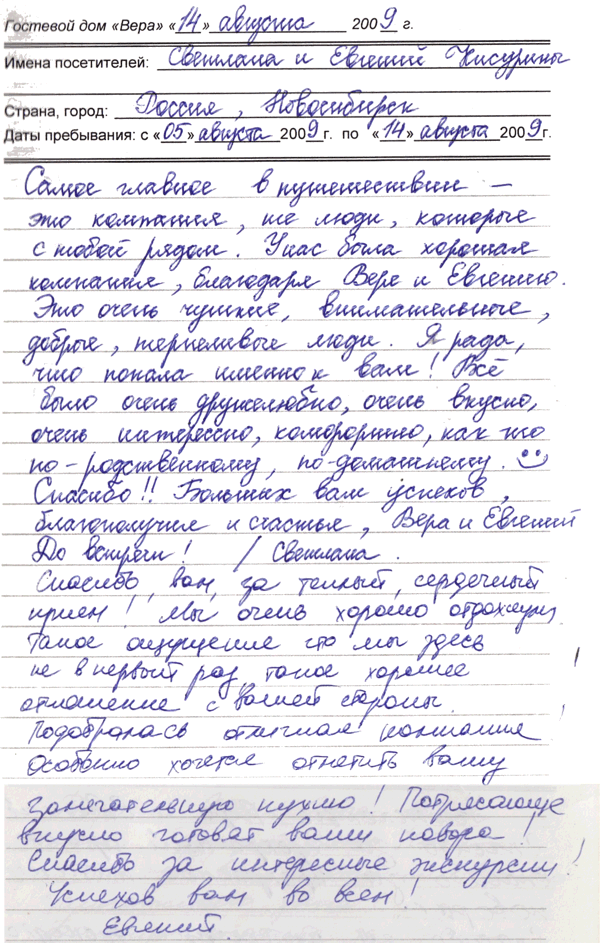 Гостевой дом «Вера» «14» августа 2009 г.
Имена посетителей: Светлана и Евгений
Страна, город: Россия, Новосибирск
Даты пребывания: с «05» августа 2009 г. по «14» августа 2009 г.
Самое главное в путешествии –
это компания, те люди, которые
с тобой рядом. У нас была хорошая
компания, благодаря Вере и Евгению.
Это очень чуткие, внимательные,
добрые, терпеливые люди. Я рада,
что попала именно к вам! Всё
было очень дружелюбно, очень вкусно,
очень интересно, комфортно, как-то
по-родственному, по-домашнему.
Спасибо!! Больших вам успехов,
благополучия и счастья, Вера и Евгений
До встречи! / Светлана.
Спасибо, вам, за теплый, сердечный
прием! Мы очень хорошо отдохнули.
Такое ощущение что мы здесь
не в первый раз, такое хорошее
отношение с вашей стороны.
Подобралась отличная компания!
Особенно хочется отметить вашу
замечательную кухню! Потрясающе
вкусно готовят ваши повара!
Спасибо за интересные экскурсии!
Успехов вам во всем!
Евгений.